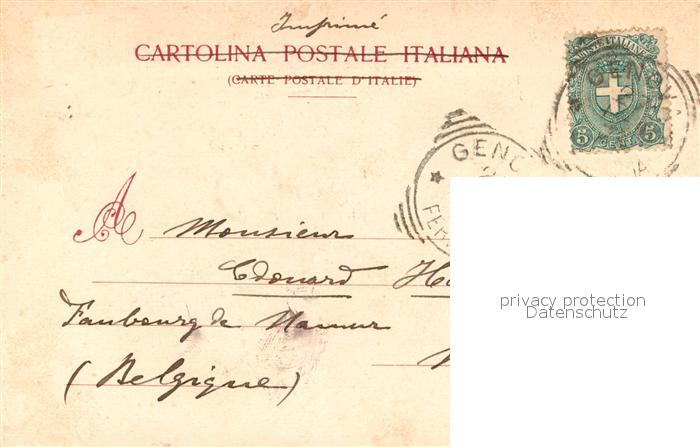 Imprimé
CARTOLINA POSTALE ITALIANA
(CARTE POSTALE D'ITALIE)
POSTE ITALIANE
5 CENT. 5
GENOVA
GENO
FER
A Monsieur
Edouard
Faubourg de Namur
(Belgique)
privacy protection
Datenschutz